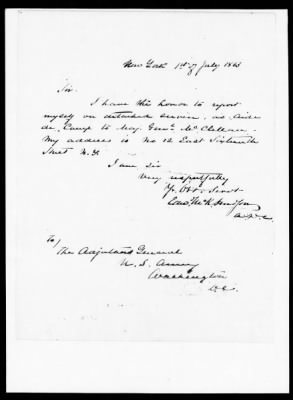 New York 1st of July 1863
Sir.
I have the honor to report
myself on detached service, as Aide
de Camp to Maj. Genl. McClellan.
My address is No 12 East Sixteenth
Street N.Y.
I am Sir
Very respectfully
Yr. Obt. Servt
Edwd McK. Hudson
A.D.C.
To/
The Adjutant General
U. S. Army
Washington
D.C.